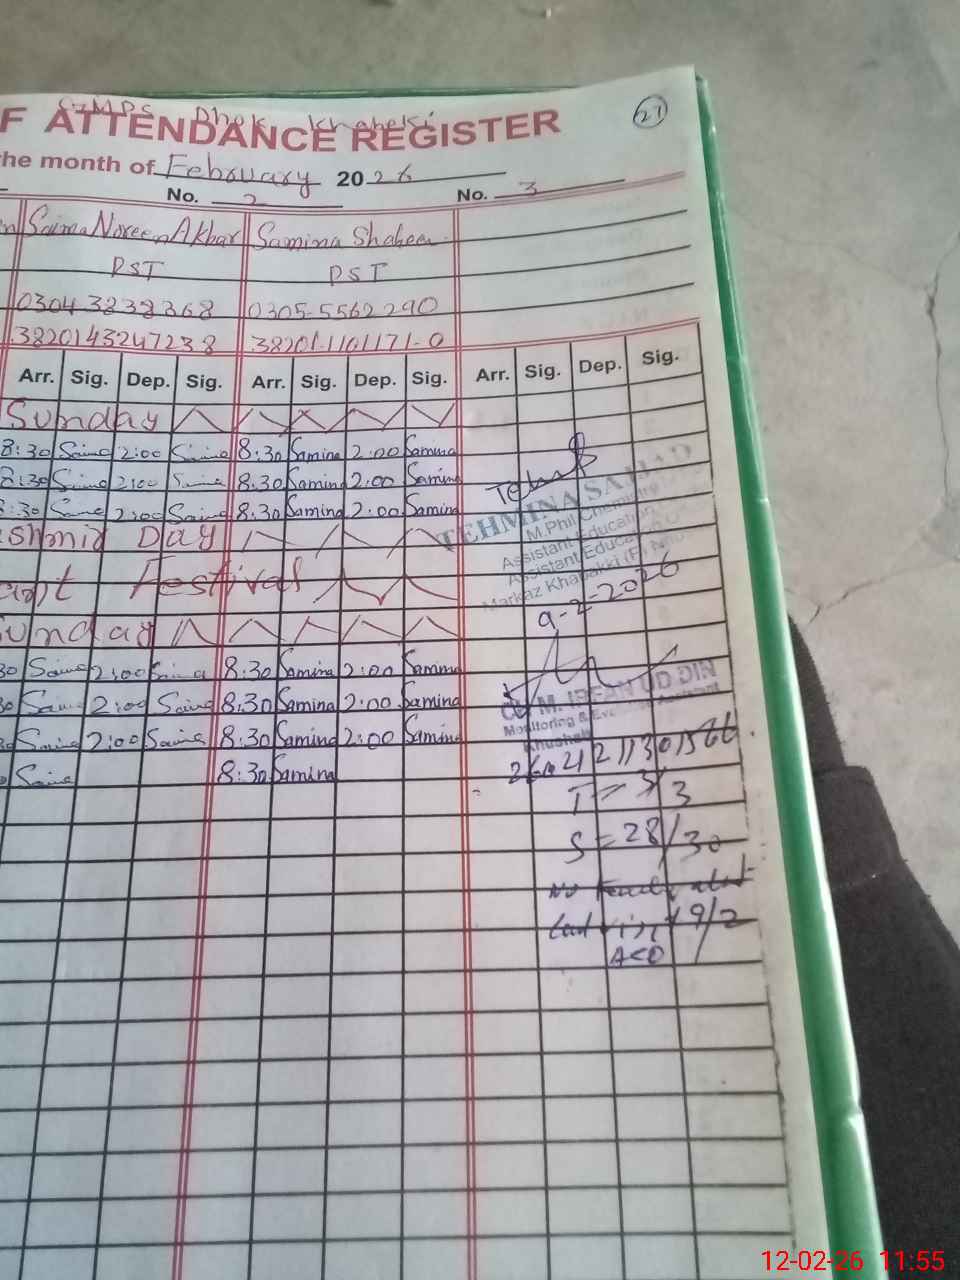 GMPS Dhok Khabeki
27
F ATTENDANCE REGISTER
he month of February 2026
No. 2 No. 3
Saima Noreen Akbar Samina Shaheen
PST PST
0304 3838368 0305-5562290
3820143247238 38201-1101171-0
Arr. Sig. Dep. Sig. Arr. Sig. Dep. Sig. Arr. Sig. Dep. Sig.
Sunday
8:30 Saima 2:00 Saima 8:30 Samina 2:00 Samina
8:30 Saima 2:00 Saima 8:30 Samina 2:00 Samina
8:30 Saima 2:00 Saima 8:30 Samina 2:00 Samina
TEHMINA SAJJAD
M.Phil Chemistry
Assistant Education
Assistant Education
Markaz Khabakki (F)
shmir Day
Festival
9-2-2026
Sunday
30 Saima 2:00 Saima 8:30 Samina 2:00 Samina
30 Saima 2:00 Saima 8:30 Samina 2:00 Samina
30 Saima 2:00 Saima 8:30 Samina 2:00 Samina
0 Saima 8:30 Samina
M. IRFAN UD DIN
Monitoring & Evaluation Assistant
Khushab
T = 3/3
S = 28/30
Last visit 9/2
AEO
12-02-26 11:55